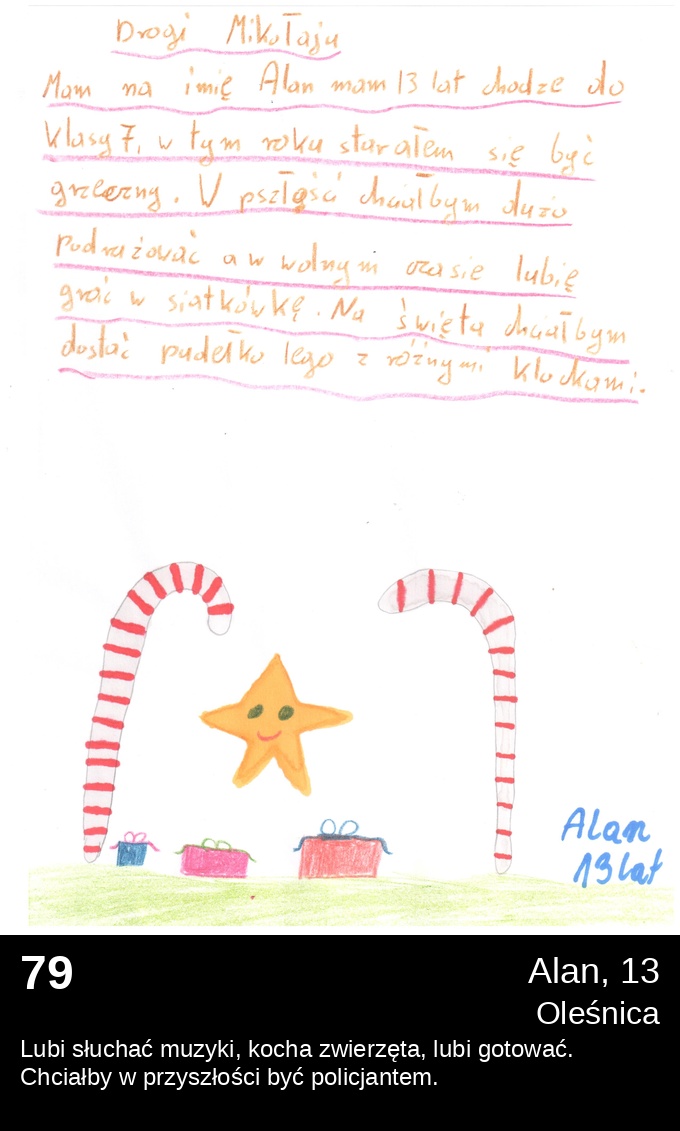 Drogi Mikołaju
Mam na imię Alan mam 13 lat chodze do
klasy 7, w tym roku starałem się być
grzeczny. W pszłośći chciałbym dużo
podrużować a w wolnym czasie lubię
grać w siatkówkę. Na święta chciałbym
dostać pudełko lego z różnymi klockami.
Alan
13 lat
79
Alan, 13
Oleśnica
Lubi słuchać muzyki, kocha zwierzęta, lubi gotować.
Chciałby w przyszłości być policjantem.